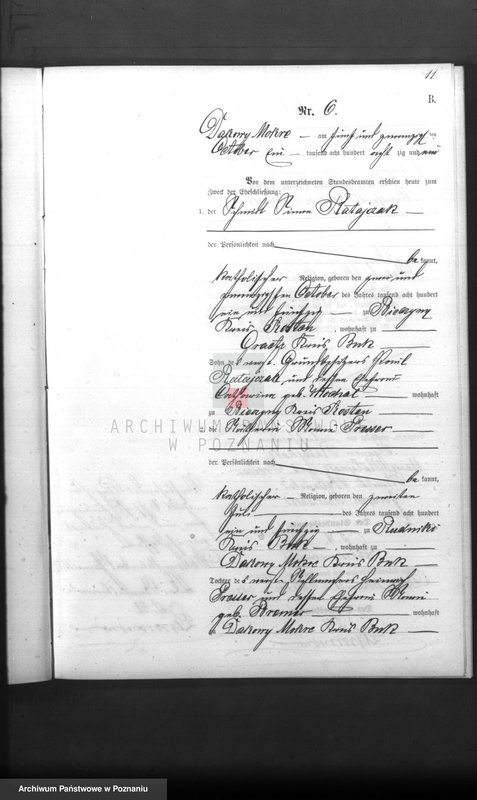 11
B.
Nr. 6.
Dakowy Mokre – am fünf und zwanzigsten
October Ein – tausend acht hundert acht zig und
Vor dem unterzeichneten Standesbeamten erschien heute zum
Zweck der Eheschließung:
1. der Schmidt Simon Ratajczak –
der Persönlichkeit nach
be kannt,
katholischer Religion, geboren den zwei und
zwanzigsten October des Jahres tausend acht hundert
ein und fünfzig – zu
Kreis Kosten, wohnhaft zu
Graetz Kreis Buk
Sohn des verst. Grundbesitzers
Ratajczak und dessen Ehefrau
geb. – wohnhaft
zu Kreis Kosten –
der Persönlichkeit nach
be kannt,
katholischer – Religion, geboren den zweiten
des Jahres tausend acht hundert
ein und fünfzig – zu Rudniki
Kreis Buk –, wohnhaft zu
Dakowy Mokre Kreis Buk –
Tochter des verst.
und dessen Ehefrau
geb. wohnhaft
zu Dakowy Mokre Kreis Buk –
ARCHIWUM PAŃSTWOWE
W POZNANIU
Archiwum Państwowe w Poznaniu